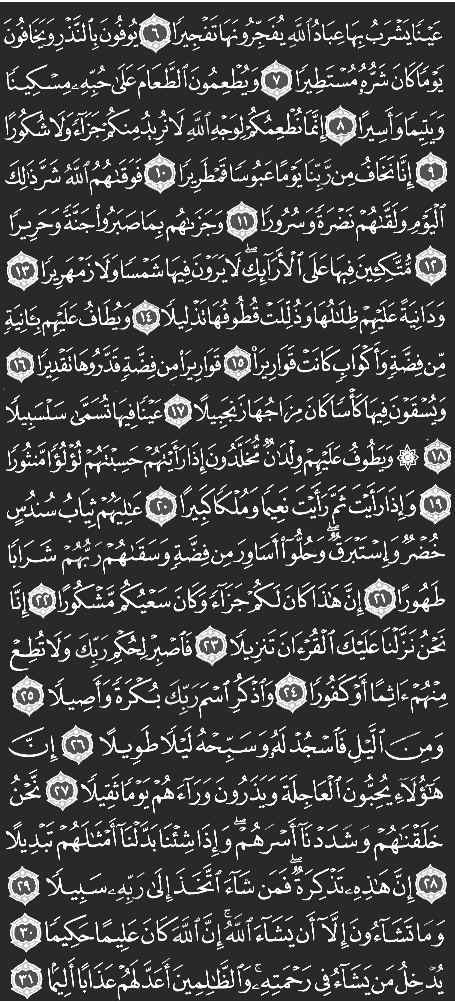 عَيْنًا يَشْرَبُ بِهَا عِبَادُ ٱللَّهِ يُفَجِّرُونَهَا تَفْجِيرًا ٦ يُوفُونَ بِٱلنَّذْرِ وَيَخَافُونَ
يَوْمًا كَانَ شَرُّهُۥ مُسْتَطِيرًا ٧ وَيُطْعِمُونَ ٱلطَّعَامَ عَلَىٰ حُبِّهِۦ مِسْكِينًا
وَيَتِيمًا وَأَسِيرًا ٨ إِنَّمَا نُطْعِمُكُمْ لِوَجْهِ ٱللَّهِ لَا نُرِيدُ مِنكُمْ جَزَآءً وَلَا شُكُورًا
٩ إِنَّا نَخَافُ مِن رَّبِّنَا يَوْمًا عَبُوسًا قَمْطَرِيرًا ١٠ فَوَقَىٰهُمُ ٱللَّهُ شَرَّ ذَٰلِكَ
ٱلْيَوْمِ وَلَقَّىٰهُمْ نَضْرَةً وَسُرُورًا ١١ وَجَزَىٰهُم بِمَا صَبَرُوا۟ جَنَّةً وَحَرِيرًا
١٢ مُّتَّكِـِٔينَ فِيهَا عَلَى ٱلْأَرَآئِكِ ۖ لَا يَرَوْنَ فِيهَا شَمْسًا وَلَا زَمْهَرِيرًا ١٣
وَدَانِيَةً عَلَيْهِمْ ظِلَـٰلُهَا وَذُلِّلَتْ قُطُوفُهَا تَذْلِيلًا ١٤ وَيُطَافُ عَلَيْهِم بِـَٔانِيَةٍ
مِّن فِضَّةٍ وَأَكْوَابٍ كَانَتْ قَوَارِيرَا۠ ١٥ قَوَارِيرَا۟ مِن فِضَّةٍ قَدَّرُوهَا تَقْدِيرًا ١٦
وَيُسْقَوْنَ فِيهَا كَأْسًا كَانَ مِزَاجُهَا زَنجَبِيلًا ١٧ عَيْنًا فِيهَا تُسَمَّىٰ سَلْسَبِيلًا
١٨ ۞ وَيَطُوفُ عَلَيْهِمْ وِلْدَٰنٌ مُّخَلَّدُونَ إِذَا رَأَيْتَهُمْ حَسِبْتَهُمْ لُؤْلُؤًا مَّنثُورًا
١٩ وَإِذَا رَأَيْتَ ثَمَّ رَأَيْتَ نَعِيمًا وَمُلْكًا كَبِيرًا ٢٠ عَـٰلِيَهُمْ ثِيَابُ سُندُسٍ
خُضْرٌ وَإِسْتَبْرَقٌ ۖ وَحُلُّوٓا۟ أَسَاوِرَ مِن فِضَّةٍ وَسَقَىٰهُمْ رَبُّهُمْ شَرَابًا
طَهُورًا ٢١ إِنَّ هَـٰذَا كَانَ لَكُمْ جَزَآءً وَكَانَ سَعْيُكُم مَّشْكُورًا ٢٢ إِنَّا
نَحْنُ نَزَّلْنَا عَلَيْكَ ٱلْقُرْءَانَ تَنزِيلًا ٢٣ فَٱصْبِرْ لِحُكْمِ رَبِّكَ وَلَا تُطِعْ
مِنْهُمْ ءَاثِمًا أَوْ كَفُورًا ٢٤ وَٱذْكُرِ ٱسْمَ رَبِّكَ بُكْرَةً وَأَصِيلًا ٢٥
وَمِنَ ٱلَّيْلِ فَٱسْجُدْ لَهُۥ وَسَبِّحْهُ لَيْلًا طَوِيلًا ٢٦ إِنَّ
هَـٰٓؤُلَآءِ يُحِبُّونَ ٱلْعَاجِلَةَ وَيَذَرُونَ وَرَآءَهُمْ يَوْمًا ثَقِيلًا ٢٧ نَّحْنُ
خَلَقْنَـٰهُمْ وَشَدَدْنَآ أَسْرَهُمْ ۖ وَإِذَا شِئْنَا بَدَّلْنَآ أَمْثَـٰلَهُمْ تَبْدِيلًا
٢٨ إِنَّ هَـٰذِهِۦ تَذْكِرَةٌ ۖ فَمَن شَآءَ ٱتَّخَذَ إِلَىٰ رَبِّهِۦ سَبِيلًا ٢٩
وَمَا تَشَآءُونَ إِلَّآ أَن يَشَآءَ ٱللَّهُ ۚ إِنَّ ٱللَّهَ كَانَ عَلِيمًا حَكِيمًا ٣٠
يُدْخِلُ مَن يَشَآءُ فِى رَحْمَتِهِۦ ۚ وَٱلظَّـٰلِمِينَ أَعَدَّ لَهُمْ عَذَابًا أَلِيمًۢا ٣١